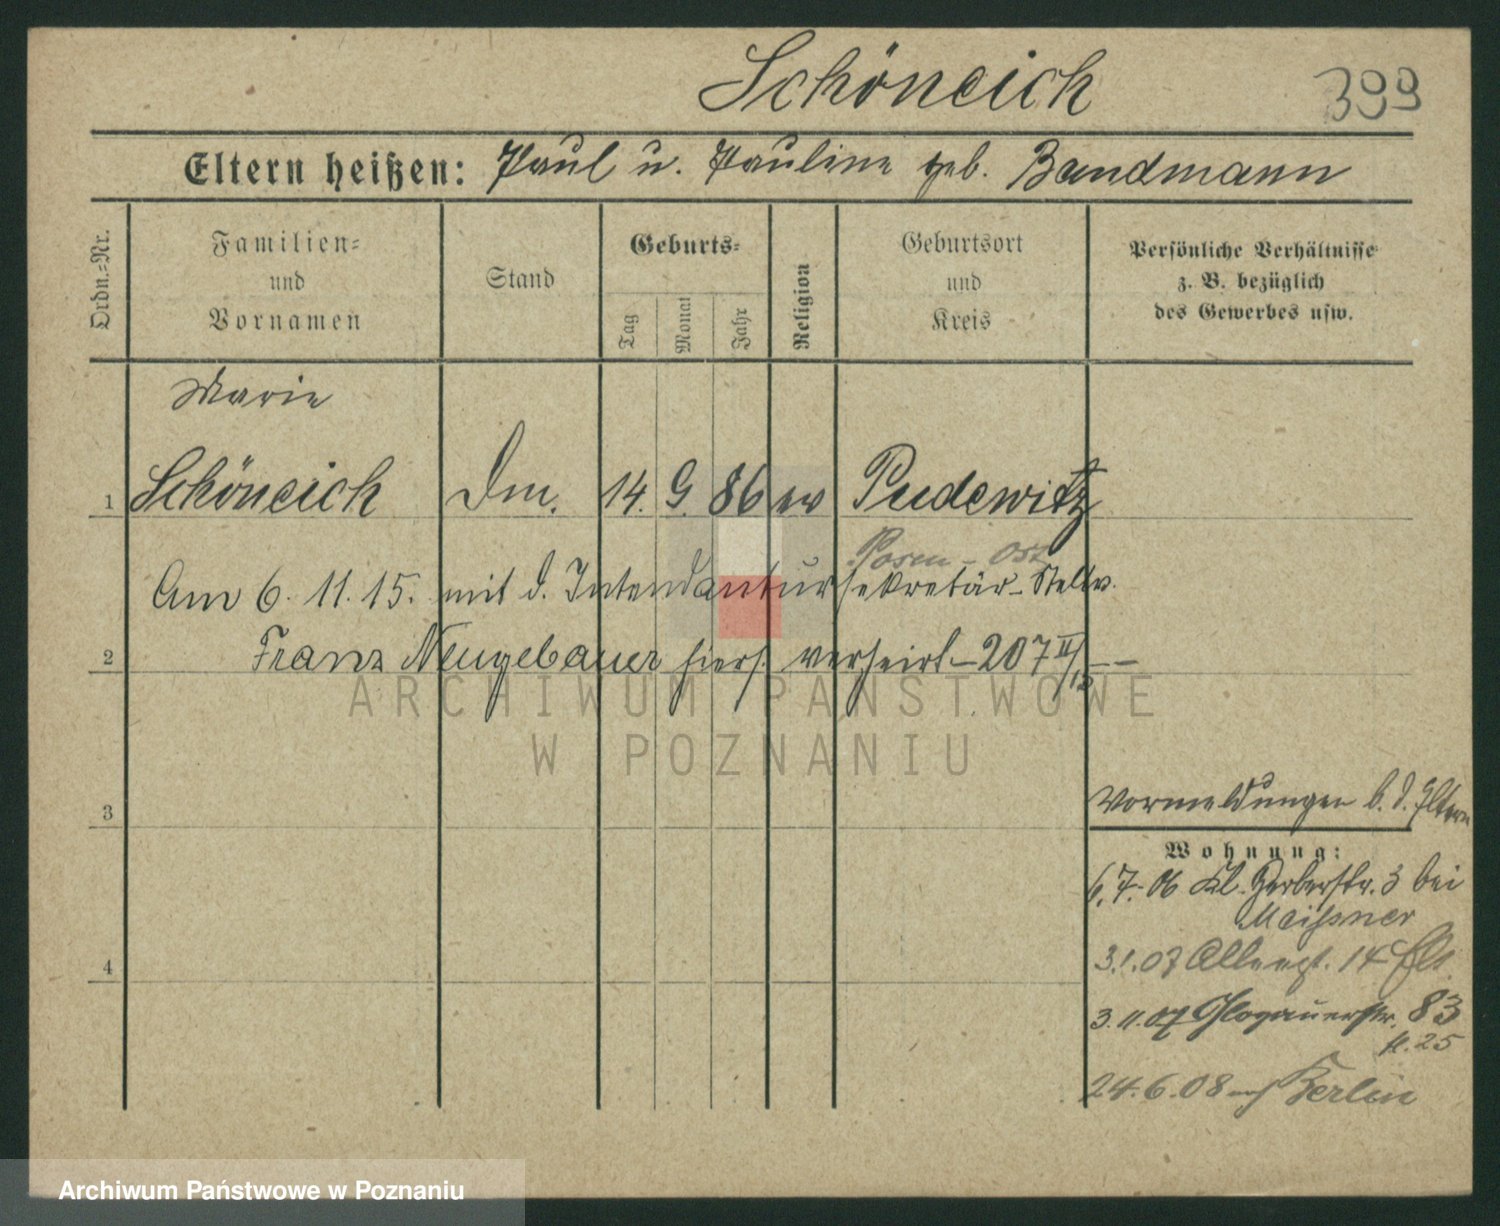 Schöneich 399
Eltern heißen: Paul u. Pauline geb. Bandmann
Ordn.-Nr.
Familien-
und
Vornamen
Stand
Geburts-
Tag
Monat
Jahr
Religion
Geburtsort
und
Kreis
Persönliche Verhältnisse
z. B. bezüglich
des Gewerbes usw.
Marie
1 Schöneich Dm. 14. 9. 86 ev Pudewitz
Posen - Ost
Am 6. 11. 15. mit d. Intendantursekretär-Stellv.
2 Franz Neugebauer hiers. verheirt - 207 II/15 --
ARCHIWUM PAŃSTWOWE
W POZNANIU
3
Vormeldungen b. d. Eltern
Wohnung:
6.7.06 Kl. Gerberstr. 3 bei
Meißner
4
3.1.07 14
3.11.07 Glogauerstr. 83
24.6.08 Berlin
Archiwum Państwowe w Poznaniu